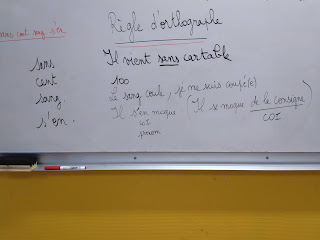 sans cent sang s'en
Règle d'orthographe
sans
Il vient sans cartable
cent
100
sang
Le sang coule, je me suis coupé(e)
s'en.
Il s'en moque (Il se moque de la consigne)
COI
COI
pronom